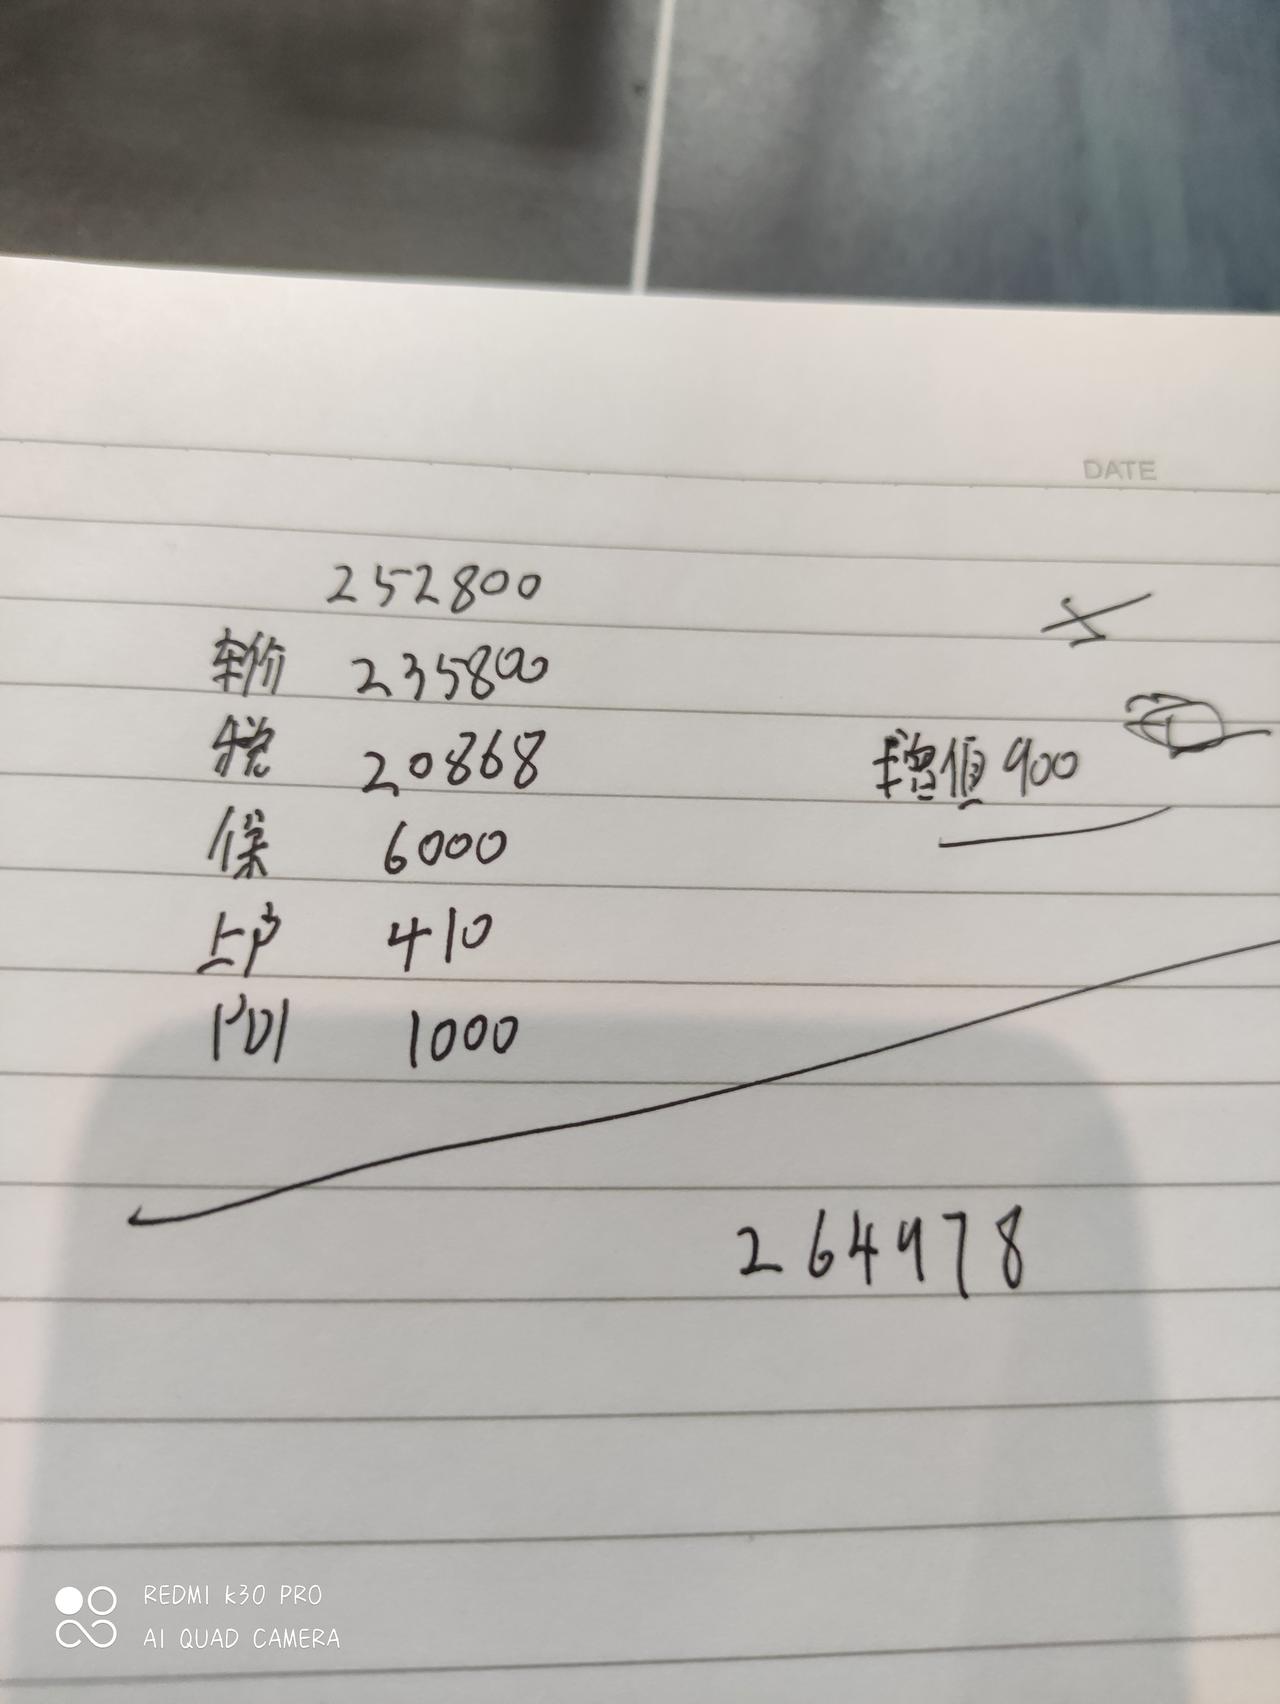 DATE
252800
车价 235800
税 20868
增值 900
保 6000
上户 410
PDI 1000
264978
REDMI K30 PRO
AI QUAD CAMERA